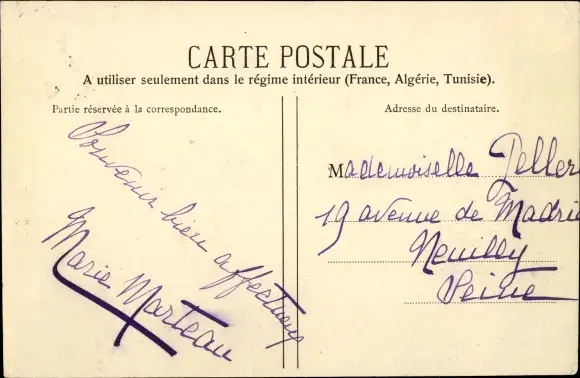 CARTE POSTALE
A utiliser seulement dans le régime intérieur (France, Algérie, Tunisie).
Partie réservée à la correspondance.
Souvenir bien affectueux
Marie Marteau
Adresse du destinataire.
Mademoiselle Peller
19 avenue de Madrid
Neuilly
Seine